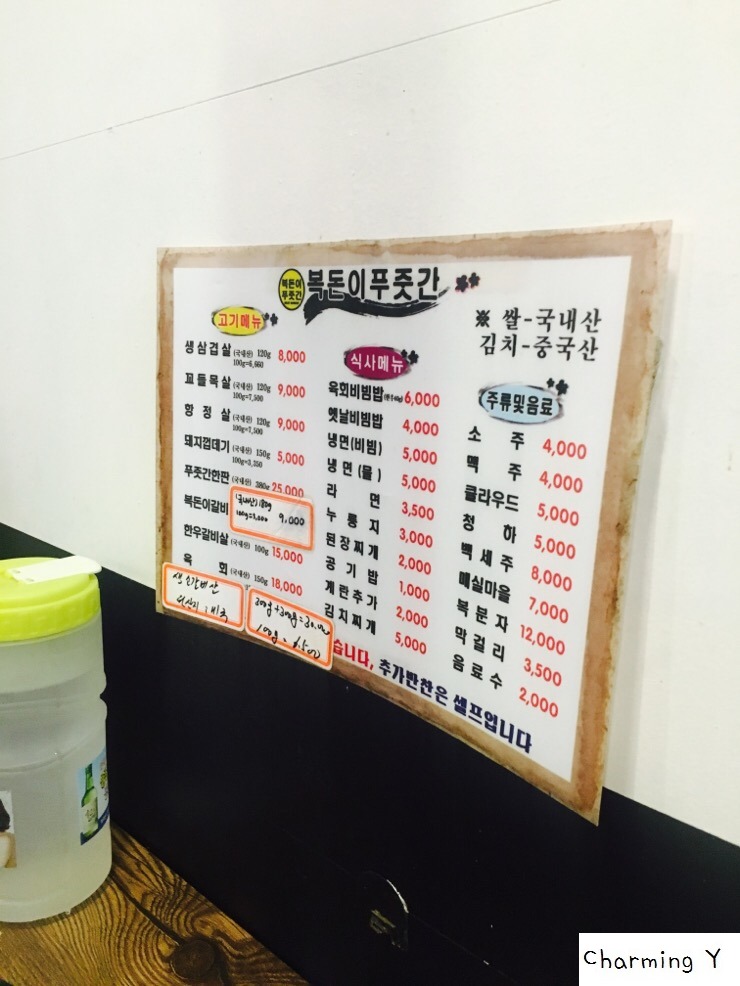 복돈이
푸줏간
복돈이푸줏간
※ 쌀-국내산
김치-중국산
고기메뉴
생삼겹살 (국내산) 120g 8,000
100g=6,660
꼬들목살 (국내산) 120g 9,000
100g=7,500
항정살 (국내산) 120g 9,000
100g=7,500
돼지껍데기 (국내산) 150g 5,000
100g=3,350
푸줏간한판 (국내산) 380g 25,000
복돈이갈비 (국내산) 180g 9,000
100g=5,000
한우갈비살 (국내산) 100g 15,000
육회 (국내산) 150g 18,000
생소갈비산
원산지 : 미국
300g+300g=30.000
100g = 6.500
식사메뉴
육회비빔밥 6,000
옛날비빔밥 4,000
냉면(비빔) 5,000
냉면(물) 5,000
라면 3,500
누룽지 3,000
된장찌개 2,000
공기밥 1,000
계란추가 2,000
김치찌개 5,000
주류및음료
소주 4,000
맥주 4,000
클라우드 5,000
청하 5,000
백세주 8,000
매실마을 7,000
복분자 12,000
막걸리 3,500
음료수 2,000
습니다, 추가반찬은 셀프입니다
Charming Y